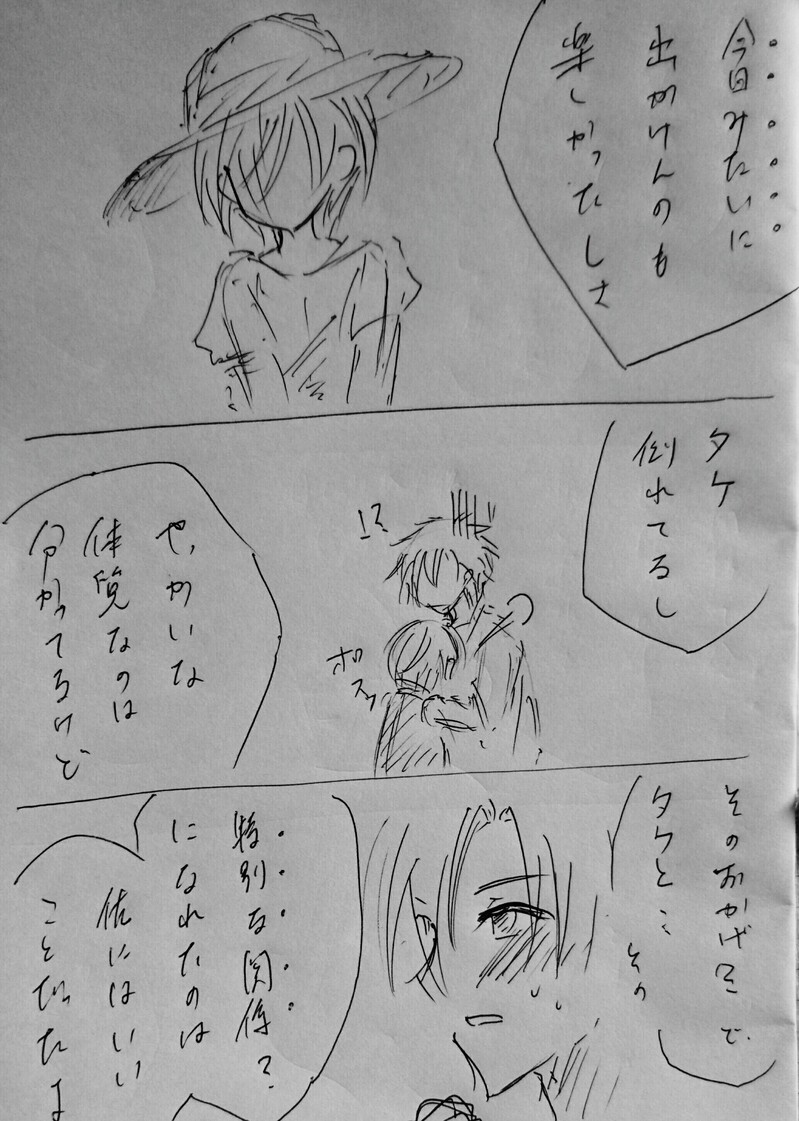 今日みたいに
出かけんのも
楽しかったしさ
タケ
倒れてるし
!?
ポスッ
やっかいな
体質なのは
分かってるけど
そのおかげ…で
タケと…
その
特別な関係?
になれたのは
俺にはいい
ことだったよ